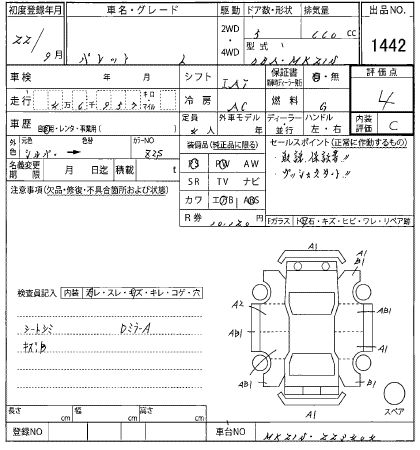 初度登録年月 車名・グレード 駆動 ドア数・形状 排気量 出品NO.
22/9月 パレット L 2WD・4WD 5 660cc 1442
型式 DBA-MK21S
車検 年 月 シフト IAT 保証書 有・無 評価点
走行 キロ マイル 冷房 AC 燃料 G 4
車歴 自家用・レンタ・事業用( ) 定員 4人 外車モデル 年 ディーラー・並行 ハンドル 左・右 内装評価 C
外色 元色 シルバー 色替 カラーNO Z2S 装備品(純正品に限る) セールスポイント(正常に作動するもの)
名義変更期限 月 日迄 積載 t PS PW AW ・取説、保証書!!
注意事項(欠品・修復・不具合箇所および状態) SR TV ナビ ・プッシュスタート!!
カワ エアB ABS
R券 円 Fガラス 飛石・キズ・ヒビ・ワレ・リペア跡
A1
A1
B1
A2
A1
AB1
AB1
AB1
A1
B1
A1
スペア
検査員記入 内装 ヨゴレ・スレ・キズ・キレ・コゲ・穴
シートシミ DミラーA
キズB
長さ cm 幅 cm 高さ cm
登録NO 車台NO MK21S-